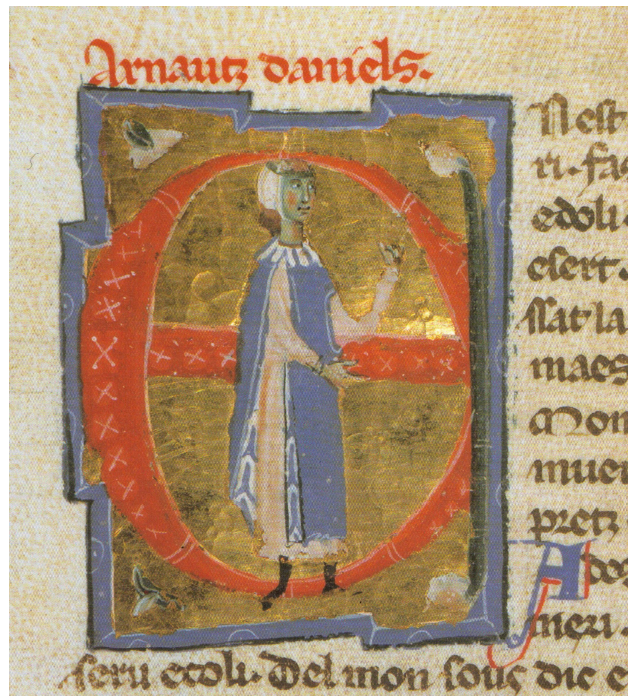 Arnautz daniels.
E
Nest
ri. fas
edoli.
esert.
ssat la
maes
Mon
muer
pretz
A dos
meri.
seru etoli. Del mon souc die e